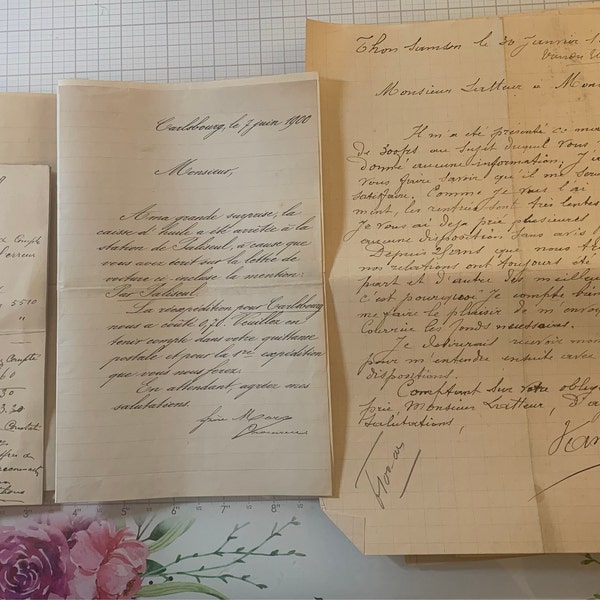 Compte
erreur
5510
"
Compte
60
30
3.30
Carlsbourg, le 7 juin 1900
Monsieur,
A ma grande surprise, la
caisse d'huile a été arrêtée à la
station de Paliseul, à cause que
vous avez écrit sur la lettre de
voiture ci incluse la mention:
Par Paliseul.
La réexpédition pour Carlsbourg
nous a coûté 0,70. Veuillez en
tenir compte dans votre quittance
postale et pour la 1re expédition
que vous nous ferez.
En attendant, agréez mes
salutations.
frère
Thon Samson le 30 Janvier
Monsieur Latteur à
Il m'a été présenté ce
de 300frs au sujet duquel vous
donné aucune information.
vous faire savoir qu'il me
satisfaire. Comme je vous l'ai
ment, les rentrées sont très lentes
Je vous ai déjà prié plusieurs
aucune disposition sans avis
Depuis ans que nous
nos relations ont toujours été
part et d'autre des meilleu
c'est pourquoi je compte
me faire le plaisir de m'envoy
les fonds nécessaires.
Je désirerais recevoir
pour m'entendre ensuite avec
dispositions.
Comptant sur votre oblige
prie, Monsieur Latteur, d'a
salutations,